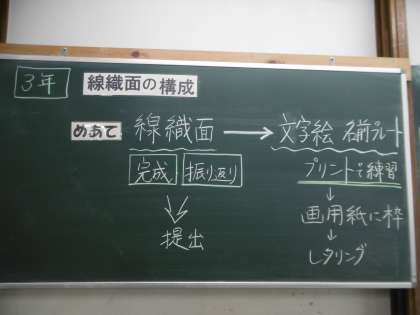 3年 線織面の構成
めあて 線織面 → 文字絵 名前プレート
完成 振り返り プリントで練習
↓
提出 画用紙に枠
↓
レタリング